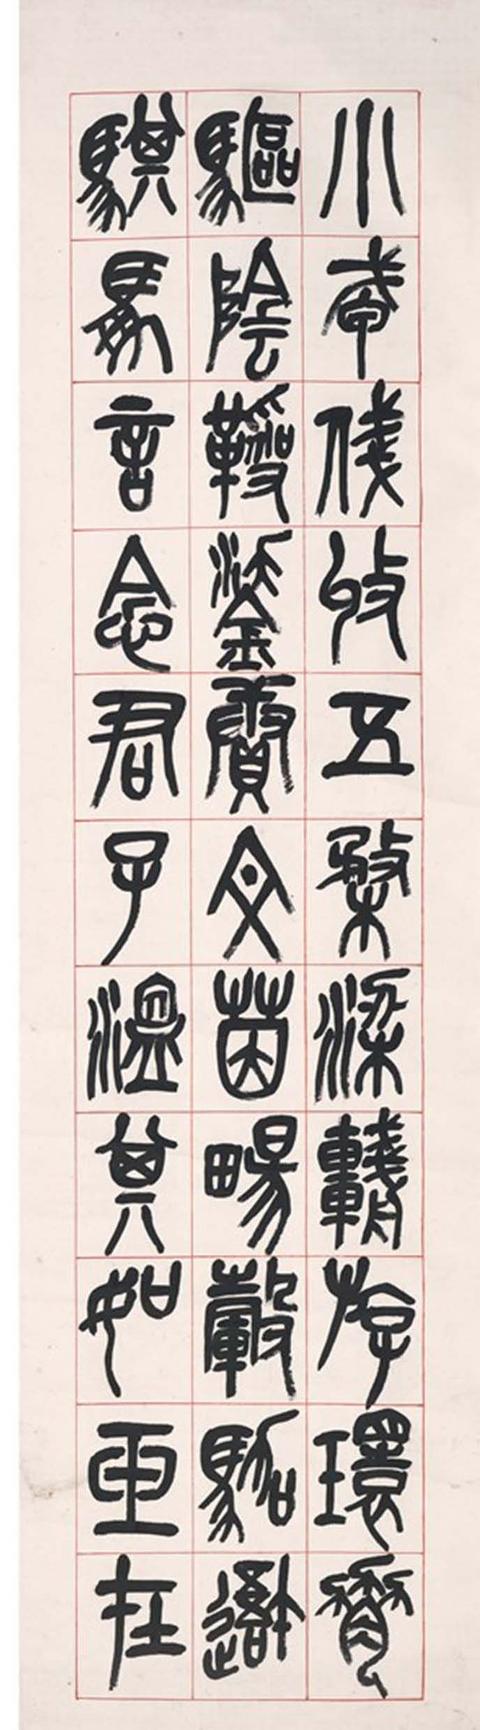 小戎俴收五楘梁輈游環脅
驅陰靷鋈續文茵暢轂駕我
騏馵言念君子溫其如玉在